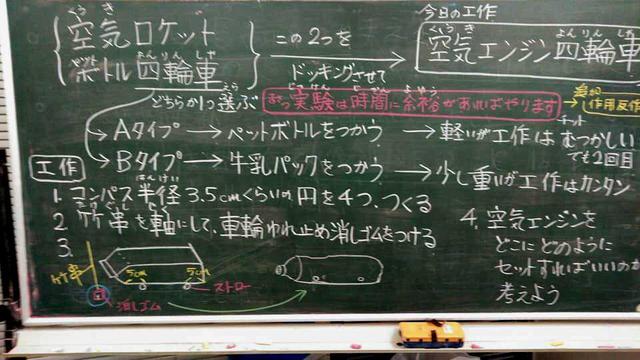 空気ロケット
ペットボトル四輪車
この2つを
ドッキングさせて
今日の工作
空気エンジン四輪車
どちらか1つ選ぶ
実験は時間に余裕があればやります
追加
作用反作
Aタイプ→ペットボトルをつかう→軽いが工作はむつかしい
でも2回目
Bタイプ→牛乳パックをつかう→少し重いが工作はカンタン
工作
1. コンパス半径3.5cmくらいの円を4つ、つくる
2. 竹串を軸にして、車輪ゆれ止め消しゴムをつける
3.
竹串
5cm
5cm
ストロー
消しゴム
4. 空気エンジンを
どこにどのように
セットすればいいのか
考えよう